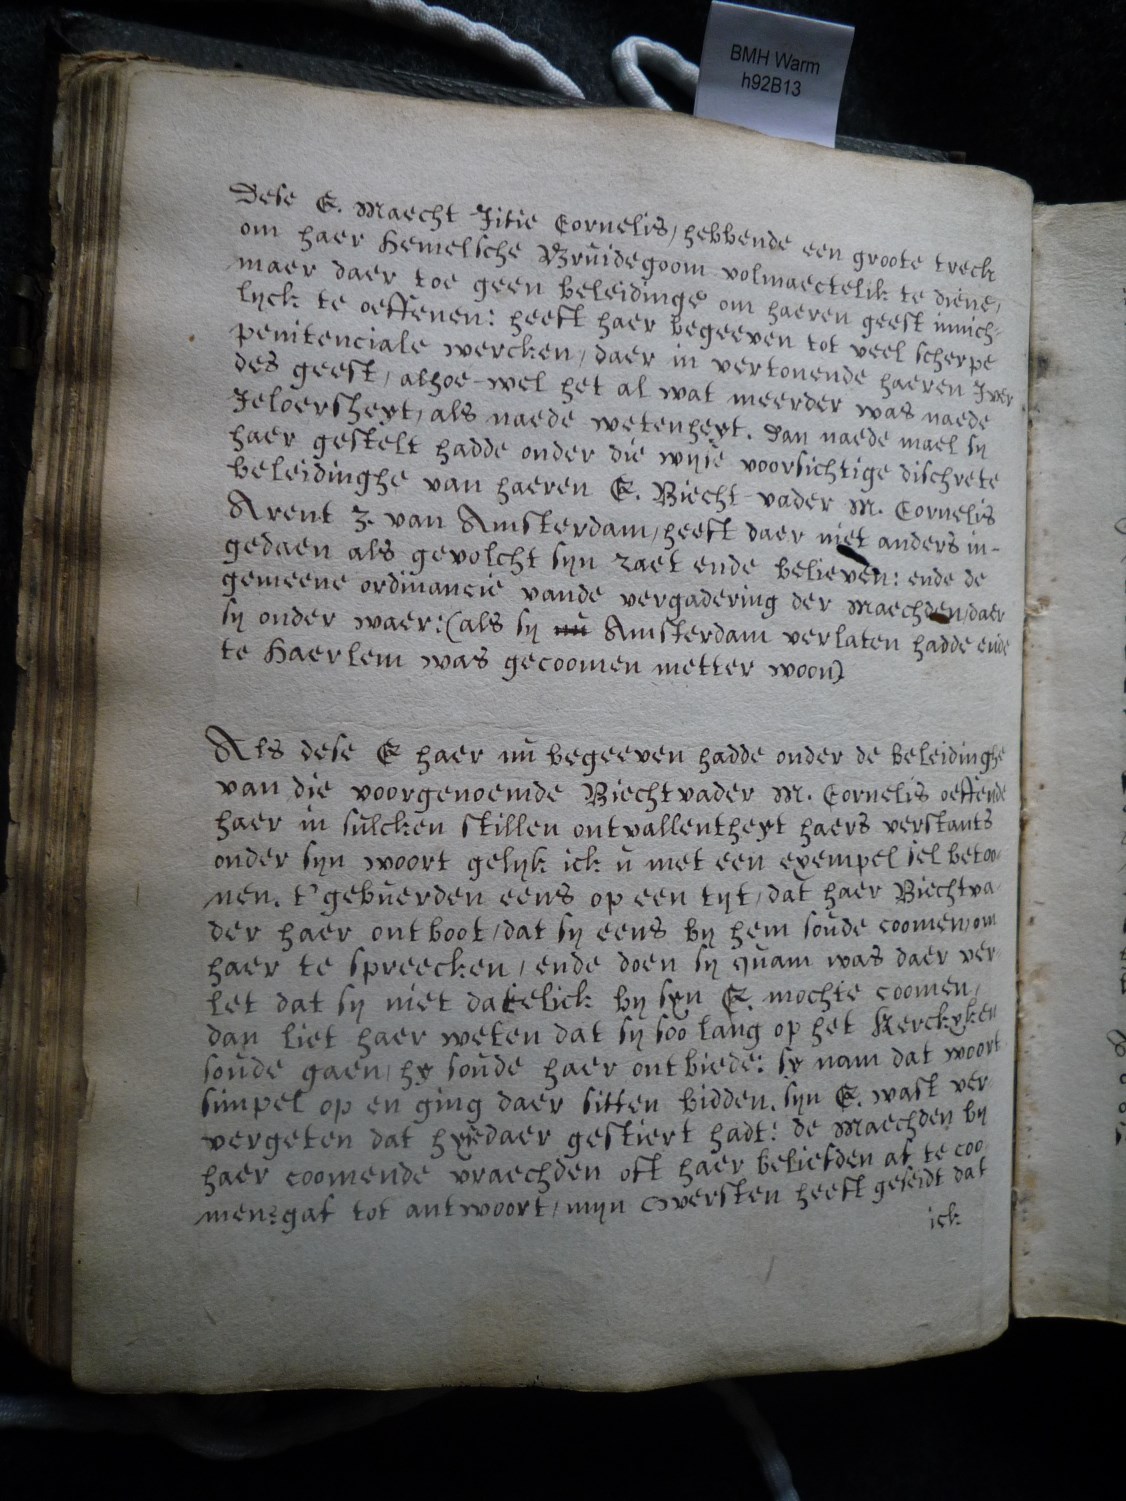 BMH Warm
h92B13
Dese E. Maecht Jitie Cornelis, hebbende een groote treck
om haer Hemelsche Bruidegoom volmaectelik te diene,
maer daer toe geen beleidinge om haeren geest innich-
lyck te oeffenen: heeft haer begeeven tot veel scherpe
penitenciale wercken, daer in vertonende haeren Jver
des geest, alhoe-wel het al wat meerder was naede
Jeloersheyt, als naede wetenheyt. Dan naede mael sy
haer gestelt hadde onder die wyse voorsichtige dischrete
beleidinghe van haeren E. Biecht-vader M. Cornelis
Arent Z. van Amsterdam, heeft daer niet anders in-
gedaen als gevolcht syn raet ende believen: ende de
gemeene ordinancie vande vergadering der Maechden, daer
sy onder waer: (als sy nu Amsterdam verlaten hadde ende
te Haerlem was gecoomen metter woon)
Als dese E haer nu begeeven hadde onder de beleidinghe
van die voorgenoemde Biechtvader M. Cornelis oeffende
haer in sulcken stillen ontvallentheyt haers verstants
onder syn woort gelyk ick u met een exempel sel betoo-
nen. t'gebuerden eens op een tyt, dat haer Biechtva-
der haer ontboot, dat sy eens by hem soude coomen, om
haer te spreecken, ende doen sy quam was daer ver-
let dat sy niet datelick by syn E. mochte coomen,
dan liet haer weten dat sy soo lang op het Kerckyken
soude gaen, hy soude haer ontbiede: sy nam dat woort
simpel op en ging daer sitten bidden. syn E. wast ver-
vergeten dat hyse daer gestiert hadt: de Maechden by
haer coomende vraechden oft haer beliefden af te coo-
men: gaf tot antwoort, myn Oversten heeft geseidt dat
ick